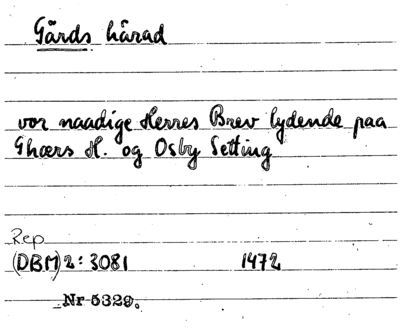 Gärds härad
vor naadige Herres Brev lydende paa
Ghœrs H. og Osby Setting
Rep
(DBM) 2: 3081 1472
Nr 5329.